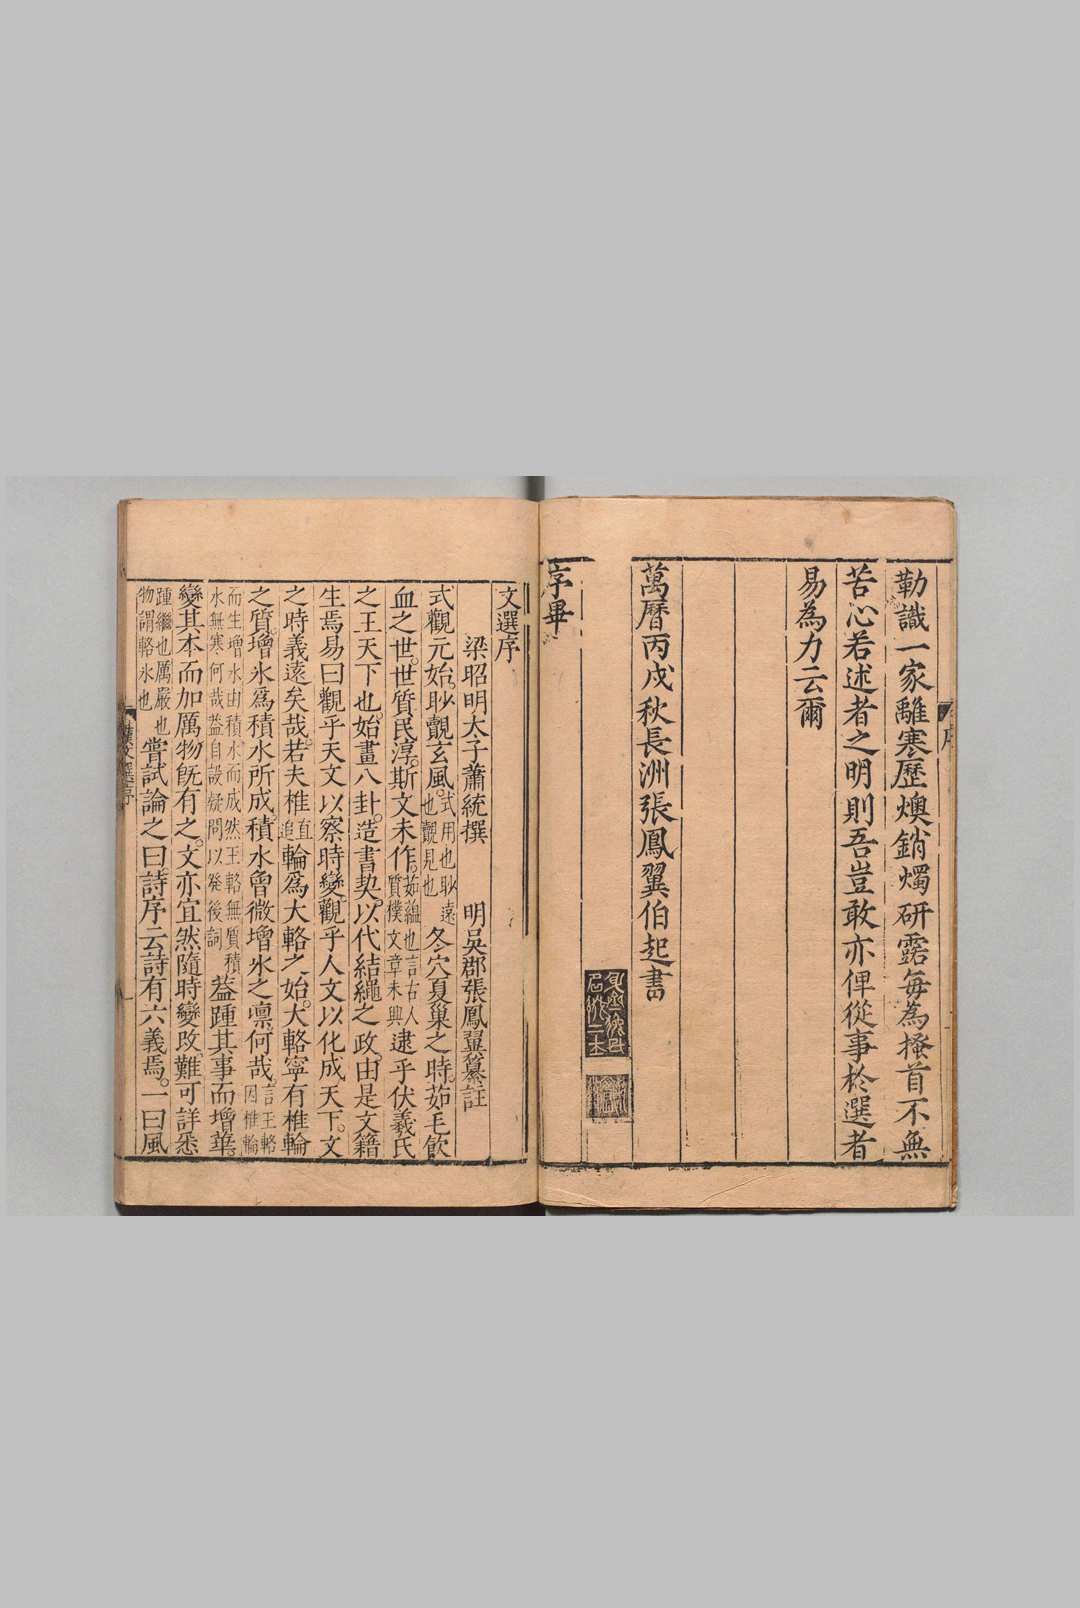 勒識一家離寒歷燠銷燭研露每為搔首不無
苦心若述者之明則吾豈敢亦俾從事於選者
易為力云爾
萬曆丙戌秋長洲張鳳翼伯起書
序畢
文選序
梁昭明太子蕭統撰　明吳郡張鳳翼纂註
式觀元始。眇覿玄風。式用也眇遠也覿見也冬穴夏巢之時。茹毛飲
血之世。世質民淳。斯文未作。茹蘊也言古人質樸文章未興逮乎伏羲氏
之王天下也。始畫八卦。造書契。以代結繩之政。由是文籍
生焉易曰觀乎天文以察時變觀乎人文以化成天下。文
之時義遠矣哉。若夫椎直追輪為大輅之始。大輅寧有椎輪
之質。增氷為積水所成。積水曾微增氷之凛何哉。言玉輅因椎輪
而生增氷由積水而成然玉輅無質積水無寒何哉葢自設疑問以發後詞葢踵其事而增華。
變其本而加厲物既有之。文亦宜然隨時變改。難可詳悉
踵繼也厲嚴也物謂輅氷也嘗試論之曰詩序云詩有六義焉。一曰風
漢文選序